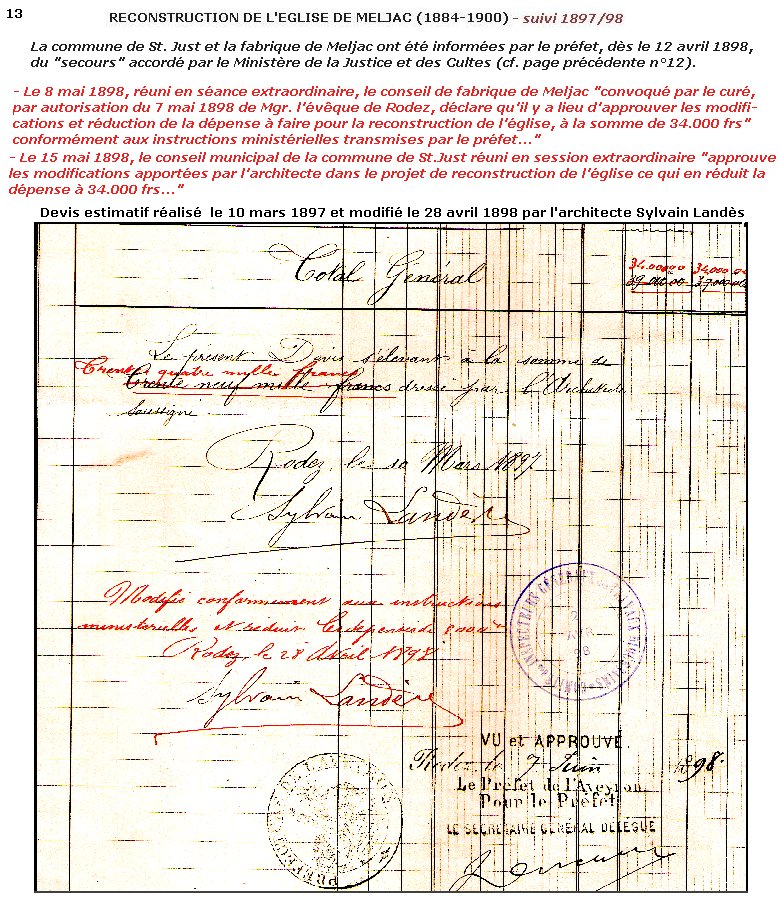 13
RECONSTRUCTION DE L'EGLISE DE MELJAC (1884-1900) - suivi 1897/98
La commune de St. Just et la fabrique de Meljac ont été informées par le préfet, dès le 12 avril 1898,
du "secours" accordé par le Ministère de la Justice et des Cultes (cf. page précédente n°12).
- Le 8 mai 1898, réuni en séance extraordinaire, le conseil de fabrique de Meljac "convoqué par le curé,
par autorisation du 7 mai 1898 de Mgr. l'évêque de Rodez, déclare qu'il y a lieu d'approuver les modifi-
cations et réduction de la dépense à faire pour la reconstruction de l'église, à la somme de 34.000 frs"
conformément aux instructions ministérielles transmises par le préfet..."
- Le 15 mai 1898, le conseil municipal de la commune de St.Just réuni en session extraordinaire "approuve
les modifications apportées par l'architecte dans le projet de reconstruction de l'église ce qui en réduit la
dépense à 34.000 frs..."
Devis estimatif réalisé le 10 mars 1897 et modifié le 28 avril 1898 par l'architecte Sylvain Landès
34.000 00 34,000 00
Total Général
Le présent Devis s'élevant à la somme de
Trente quatre mille francs
Trente neuf mille francs dressé par l'Architecte
soussigné
Rodez, le 10 Mars 1897
Sylvain Landès
Modifié conformément aux instructions
ministérielles et réduit
Rodez le 28 Avril 1898
Sylvain Landès
AVR
98
VU et APPROUVÉ
Rodez le 7 Juin 1898.
Le Préfet de l'Aveyron
Pour le Préfet
LE SECRÉTAIRE GÉNÉRAL DÉLÉGUÉ